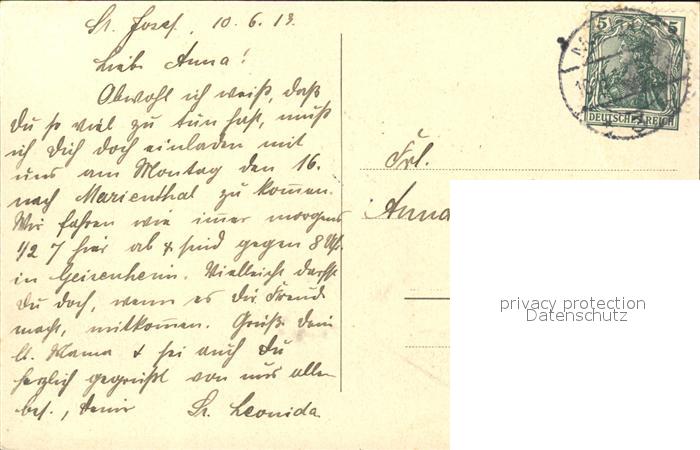 St. Josef, 10.6.13
Liebe Anna!
Obwohl ich weiß, daß
Du so viel zu tun hast, muß
ich Dich doch einladen mit
uns am Montag den 16.
nach Marienthal zu kom̅en.
Wir fahren wie im̅er morgens
1/2 7 hier ab & sind gegen 8 Uhr
in Geisenheim. Vielleicht darfst
Du doch, wenn es Dir Freud
macht, mitkom̅en. Grüße Deine
lb. Mama & sei auch Du
herzlich gegrüßt von uns allen
bes., Deiner Sr. Leonida
5 5
DEUTSCHES REICH
Frl.
Anna
privacy protection
Datenschutz